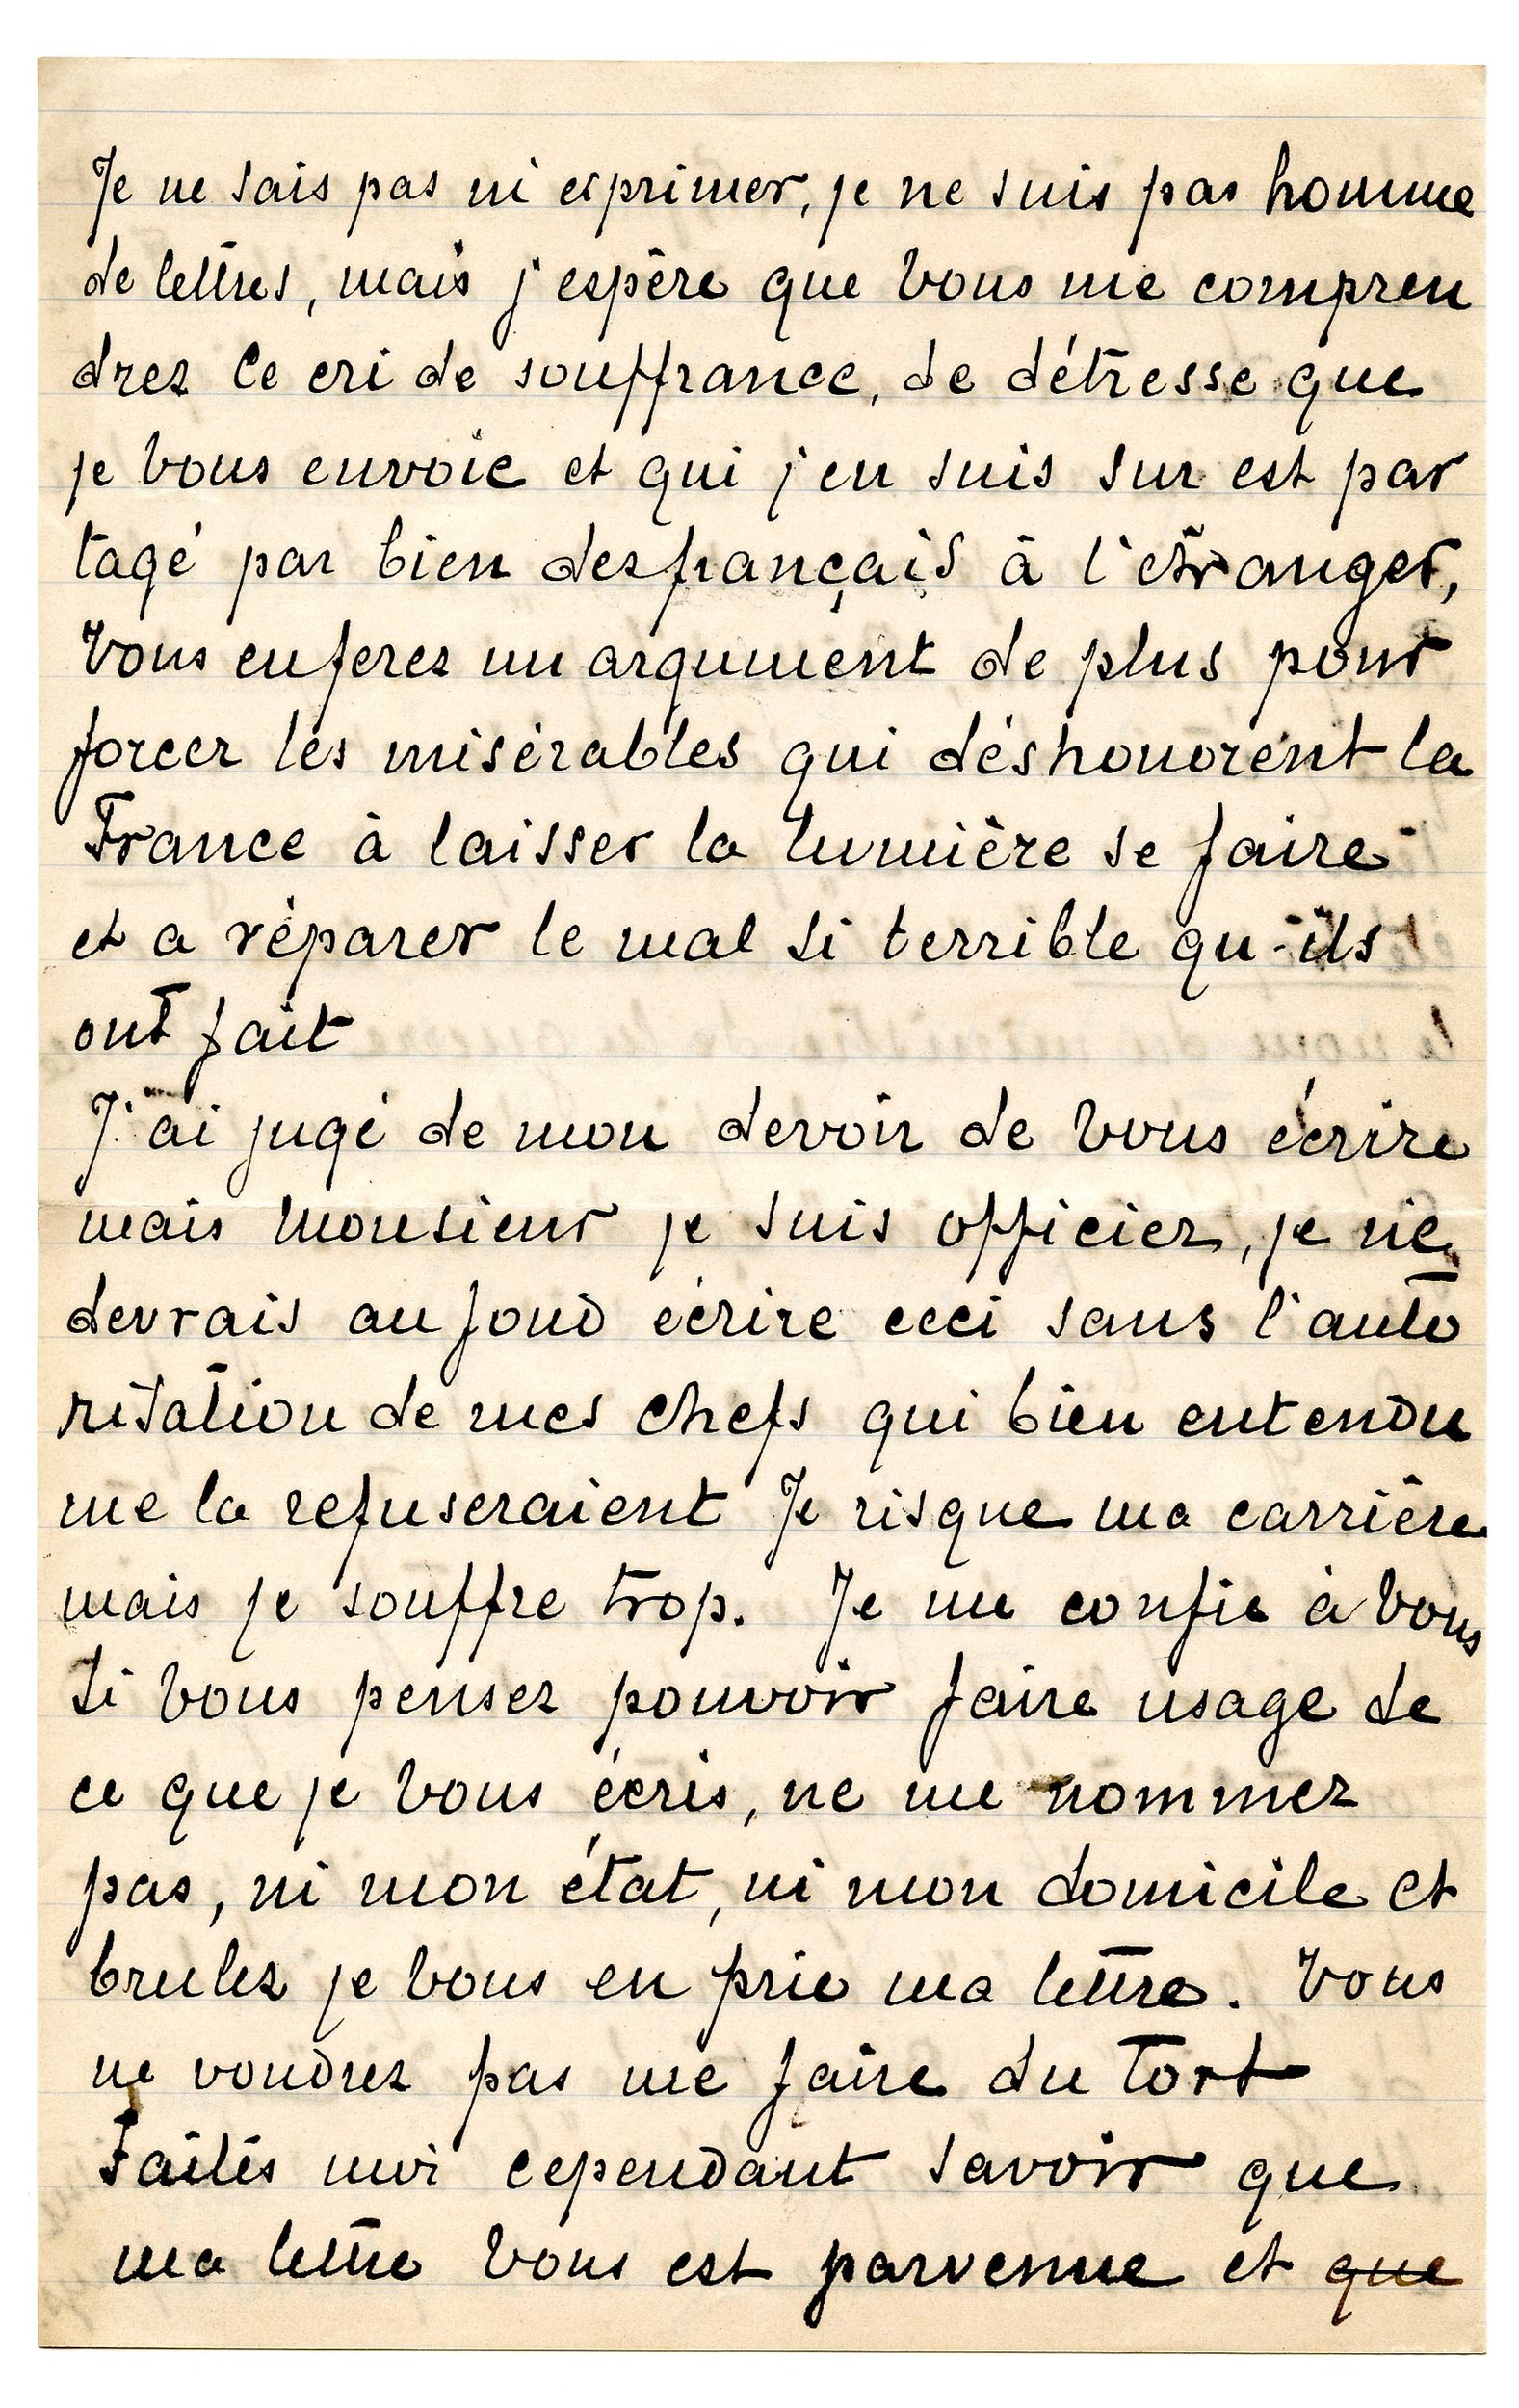 Je ne sais pas m'exprimer, je ne suis pas homme
de lettres, mais j'espère que vous me compren
drez ce cri de souffrance, de détresse que
je vous envoie et qui j'en suis sur est par
tagé par bien des français à l'étranger,
Vous en ferez un argument de plus pour
forcer les misérables qui déshonorent la
France à laisser la lumière se faire
et a réparer le mal si terrible qu'ils
ont fait
J'ai jugé de mon devoir de vous écrire
mais Monsieur je suis officier, je ne
devrais au fond écrire ceci sans l'auto
risation de mes chefs qui bien entendu
me la refuseraient Je risque ma carrière
mais je souffre trop. Je me confie à vous
Si vous pensez pouvoir faire usage de
ce que je vous écris, ne me nommez
pas, ni mon état, ni mon domicile et
brulez je vous en prie ma lettre. Vous
ne voudrez pas me faire du tort
Faites moi cependant savoir que
ma lettre vous est parvenue et que